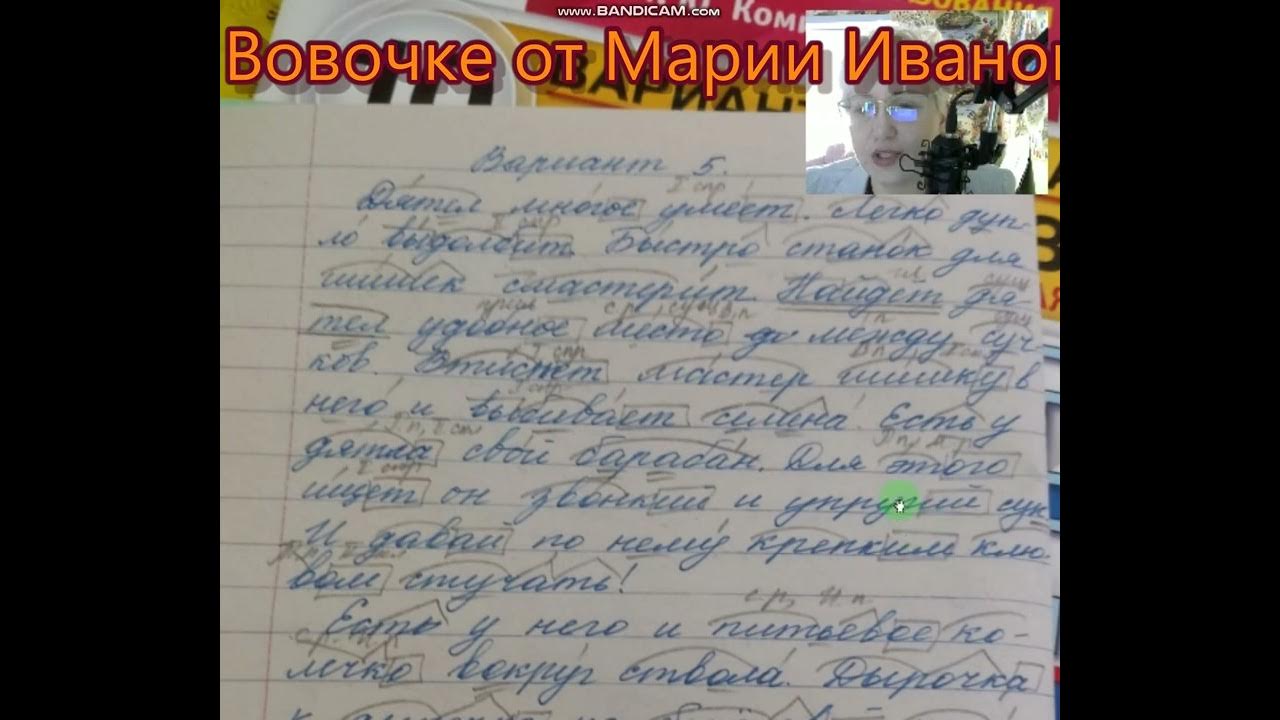 www.BANDICAM.com
Ком
ВОВАНИЯ
Вовочке от Марии Ивано
ВАРИАНТ
Вариант 5.
Дятел многое умеет. Легко дуп-
I спр
ло выдолбит. Быстро станок для
II спр
шишек смастерит. Найдет дя-
тел удобное место до между суч-
ков. Втиснет мастер шишку в
I спр
него и выбивает семена. Есть у
I спр
дятла свой барабан. Для этого
ищет он звонкий и упругий сук
I спр
И давай по нему крепким клю-
вом стучать!
ср, И. п.
Есть у него и питьевое ко-
лечко вокруг ствола. Дырочка